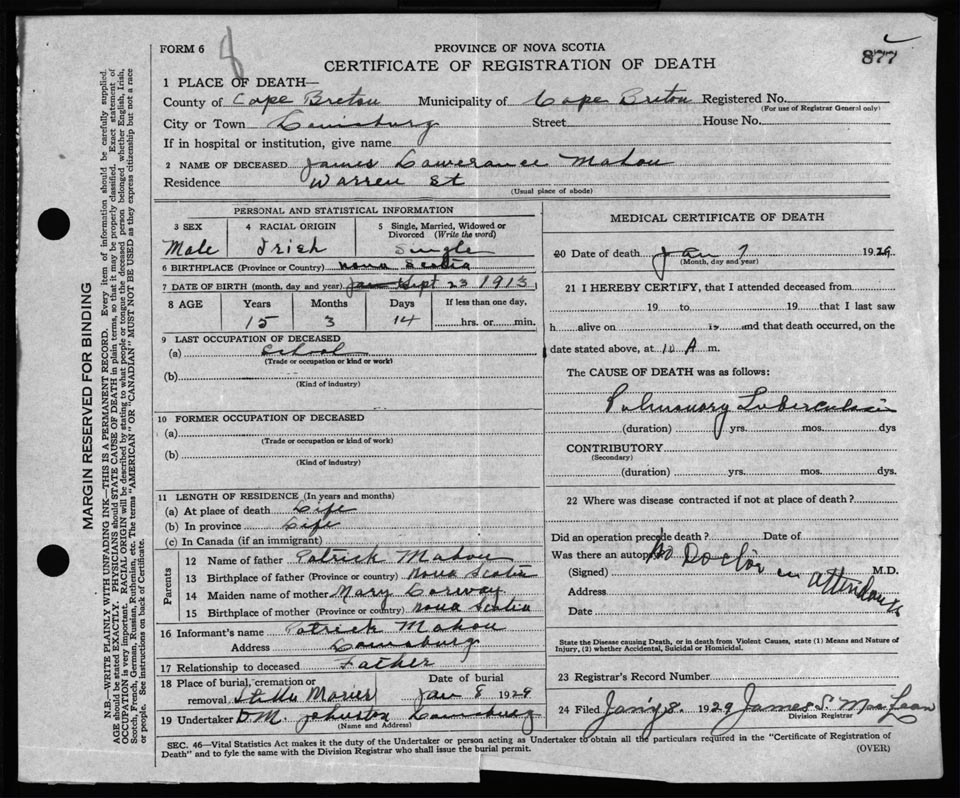 FORM 6
PROVINCE OF NOVA SCOTIA
877
CERTIFICATE OF REGISTRATION OF DEATH
1 PLACE OF DEATH—
County of Cape Breton Municipality of Cape Breton Registered No.
(For use of Registrar General only)
City or Town Louisburg Street House No.
If in hospital or institution, give name
2 NAME OF DECEASED James Lawerance Mahon
Residence Warren St
(Usual place of abode)
PERSONAL AND STATISTICAL INFORMATION
3 SEX 4 RACIAL ORIGIN 5 Single, Married, Widowed or
Divorced (Write the word)
Male Irish Single
6 BIRTHPLACE (Province or Country) Nova Scotia
7 DATE OF BIRTH (month, day and year) Jan Sept 23 1913
8 AGE Years Months Days If less than one day,
15 3 14 hrs. or min.
9 LAST OCCUPATION OF DECEASED
(a) School
(Trade or occupation or kind or work)
(b)
(Kind of industry)
10 FORMER OCCUPATION OF DECEASED
(a)
(Trade or occupation or kind of work)
(b)
(Kind of industry)
11 LENGTH OF RESIDENCE (In years and months)
(a) At place of death Life
(b) In province Life
(c) In Canada (if an immigrant)
Parents
12 Name of father Patrick Mahon
13 Birthplace of father (Province or country) Nova Scotia
14 Maiden name of mother Mary
15 Birthplace of mother (Province or country) Nova Scotia
16 Informant's name Patrick Mahon
Address Louisburg
17 Relationship to deceased Father
18 Place of burial, cremation or Date of burial
removal Stella Maries Jan 8 1929
19 Undertaker D.M. Johnston Louisburg
(Name and Address)
MEDICAL CERTIFICATE OF DEATH
20 Date of death Jan 7 1929
(Month, day and year)
21 I HEREBY CERTIFY, that I attended deceased from
19 to 19 that I last saw
h alive on 19 and that death occurred, on the
date stated above, at 10 A m.
The CAUSE OF DEATH was as follows:
Pulmonary Tuberculosis
(duration) yrs. mos. dys
CONTRIBUTORY
(Secondary)
(duration) yrs. mos. dys.
22 Where was disease contracted if not at place of death?
Did an operation precede death? Date of
Was there an autopsy
No Doctor in attendance
(Signed) M.D.
Address
Date
State the Disease causing Death, or in death from Violent Causes, state (1) Means and Nature of
Injury, (2) whether Accidental, Suicidal or Homicidal.
23 Registrar's Record Number
24 Filed Jany 8. 1929 James S. MacLean
Division Registrar
SEC. 46—Vital Statistics Act makes it the duty of the Undertaker or person acting as Undertaker to obtain all the particulars required in the "Certificate of Registration of
Death" and to fyle the same with the Division Registrar who shall issue the burial permit. (OVER)
MARGIN RESERVED FOR BINDING
N.B.—WRITE PLAINLY WITH UNFADING INK—THIS IS A PERMANENT RECORD. Every item of information should be carefully supplied.
AGE should be stated EXACTLY. PHYSICIANS should STATE CAUSE OF DEATH in plain terms, so that it may be properly classified. Exact statement of
OCCUPATION is very important. RACIAL ORIGIN will be described by stating to what people or tongue the deceased person belonged whether English, Irish,
Scotch, French, German, Russian, Ruthenian, etc. The terms "AMERICAN" OR "CANADIAN" MUST NOT BE USED as they express citizenship but not a race
or people. See instructions on back of Certificate.